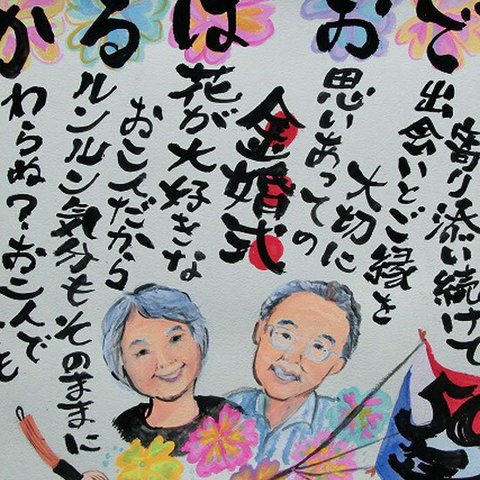 ごおはるか
寄り添い続けて
出会いとご縁を
大切に
思いあっての
金婚式
花が大好きな
お二人だから
ルンルン気分もそのままに
わらぬ？お二人で
も